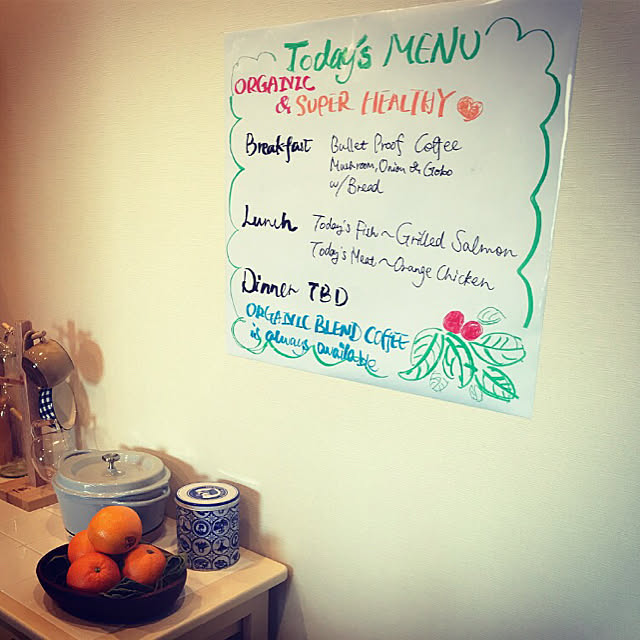 Today's MENU
ORGANIC
& SUPER HEALTHY
Breakfast Bullet Proof Coffee
Mushroom, Onion & Gobo
w/ Bread
Lunch Today's Fish ~ Grilled Salmon
Today's Meat ~ Orange Chicken
Dinner TBD
ORGANIC BLEND COFFEE
is always available